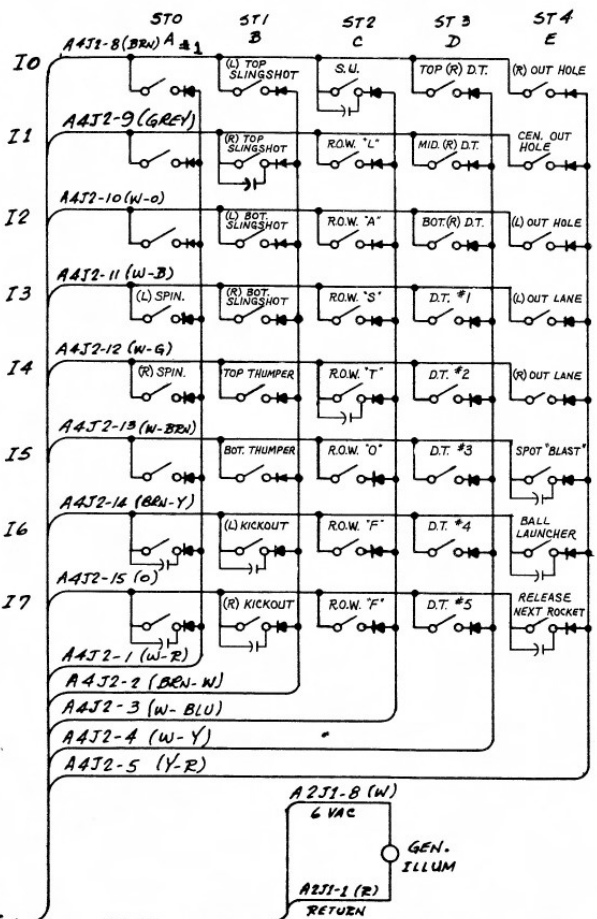 ST0 ST1 ST2 ST3 ST4
A #1 B C D E
I0 A4J2-8 (BRN)
(L) TOP SLINGSHOT
S.U.
TOP (R) D.T.
(R) OUT HOLE
I1 A4J2-9 (GREY)
(R) TOP SLINGSHOT
R.O.W. "L"
MID. (R) D.T.
CEN. OUT HOLE
I2 A4J2-10 (W-O)
(L) BOT. SLINGSHOT
R.O.W. "A"
BOT. (R) D.T.
(L) OUT HOLE
I3 A4J2-11 (W-B)
(L) SPIN.
(R) BOT. SLINGSHOT
R.O.W. "S"
D.T. #1
(L) OUT LANE
I4 A4J2-12 (W-G)
(R) SPIN.
TOP THUMPER
R.O.W. "T"
D.T. #2
(R) OUT LANE
I5 A4J2-13 (W-BRN)
BOT. THUMPER
R.O.W. "O"
D.T. #3
SPOT "BLAST"
I6 A4J2-14 (BRN-Y)
(L) KICKOUT
R.O.W. "F"
D.T. #4
BALL LAUNCHER
I7 A4J2-15 (O)
(R) KICKOUT
R.O.W. "F"
D.T. #5
RELEASE NEXT ROCKET
A4J2-1 (W-R)
A4J2-2 (BRN-W)
A4J2-3 (W-BLU)
A4J2-4 (W-Y)
A4J2-5 (Y-R)
A2J1-8 (W)
6 VAC
GEN. ILLUM
A2J1-1 (R)
RETURN